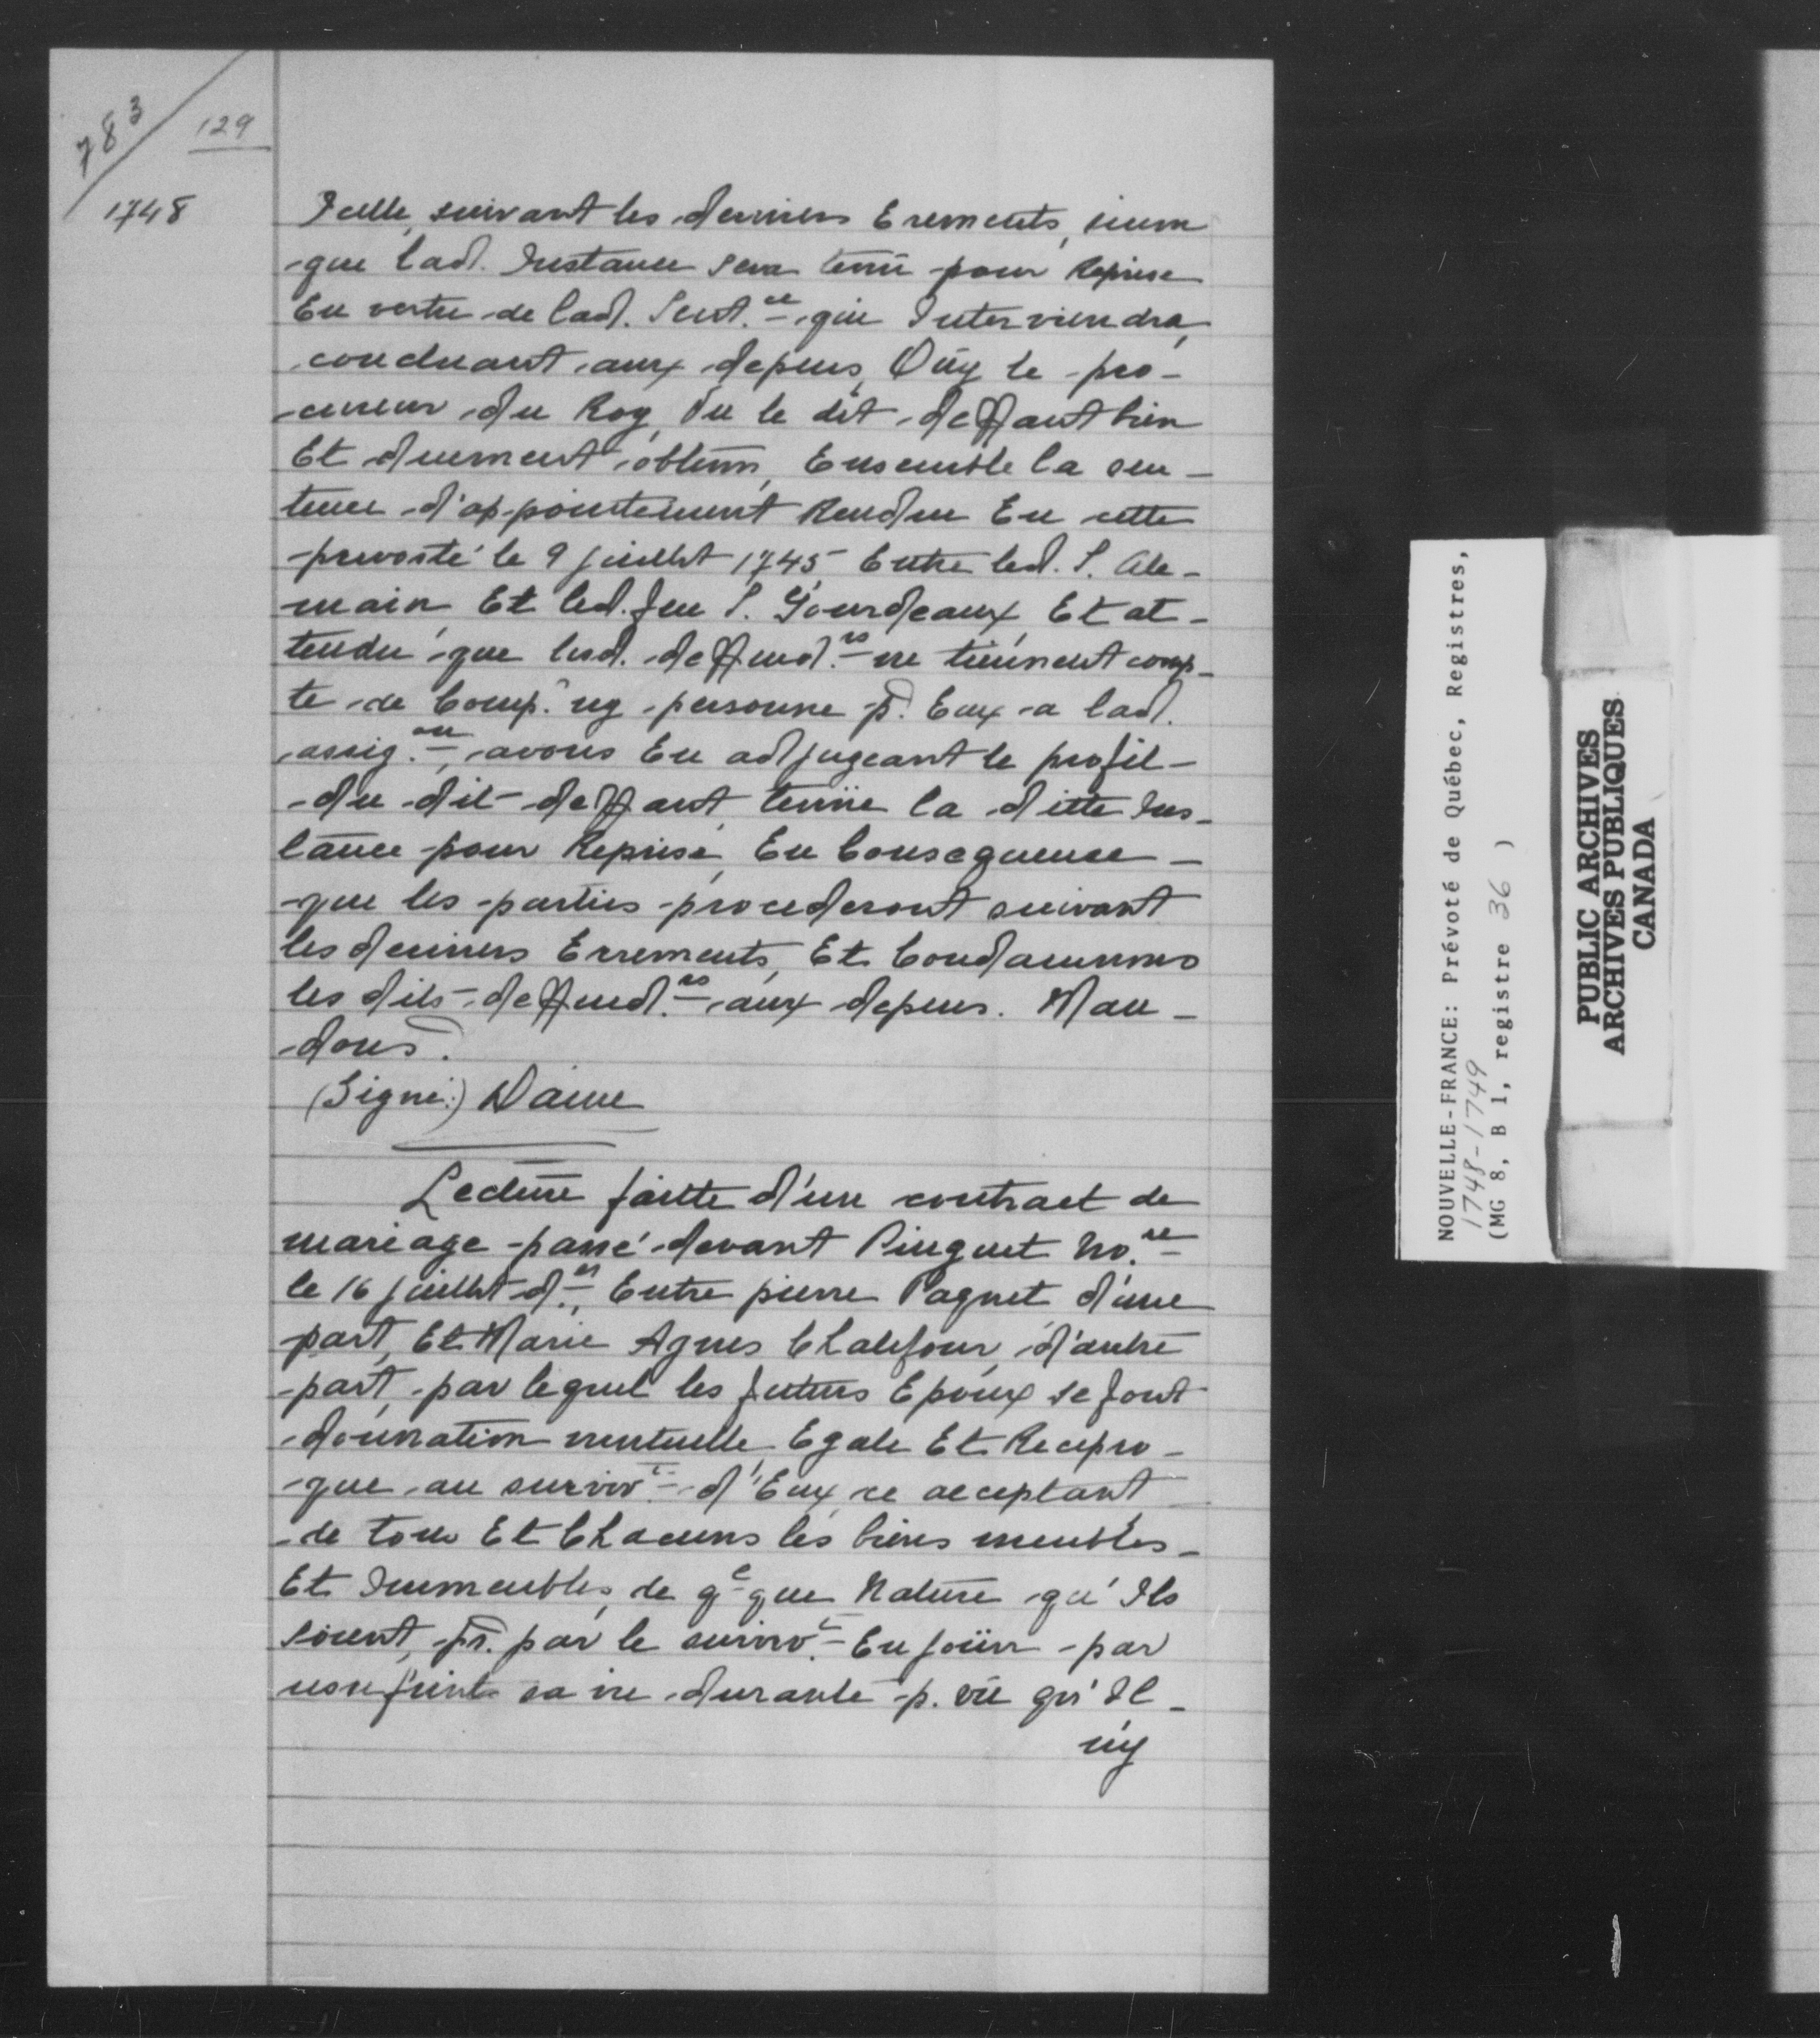 783
129
1748
Icelle, suivant les derniers Erements, sinon
que lad. Instance sera tenü pour Reprise
En vertu de lad. Sent.ce qui Interviendra,
concluant aux depens, Oüy le pro-
cureur du Roy, Vu le dit deffaut bien
Et duement obtenu, Ensemble la sen-
tence d'appointement Rendue En cette
prevosté le 9 juillet 1745 Entre led. S. Ale-
main Et led. feu S. Gourdeaux, Et at-
tendu que lesd. deffend.rs ne tiennent comp-
te de Comp. ny personne p. Eux a lad.
assig.on, avons En adjugeant le profil-
du dit deffaut, tenüe la ditte Ins-
tance pour Reprise, En Consequence-
que les parties procederont suivant
les derniers Errements, Et Condamnons
les dits deffend.rs aux depens. Man-
dons.
(Signé:) Daine
Lecture faitte d'un contract de
mariage passé devant Pinguet No.re
le 16 juillet d.er, Entre pierre Paquet d'une
part, Et Marie Agnes Chalifour, d'autre
part, par lequel les futurs Epoux se font
donnation mutuelle, Egale Et Recipro-
que au surviv.t d'Eux ce acceptant
de tous Et Chacuns les biens meubles-
Et Immeubles, de q.lque Nature qu'Ils
soient, pr. par le surviv.t En joüir par
usufruit sa vie durante p. vû qu'Il-
ny
NOUVELLE-FRANCE: Prévoté de Québec, Registres,
1748-1749
(MG 8, B 1, registre 36 )
PUBLIC ARCHIVES
ARCHIVES PUBLIQUES
CANADA